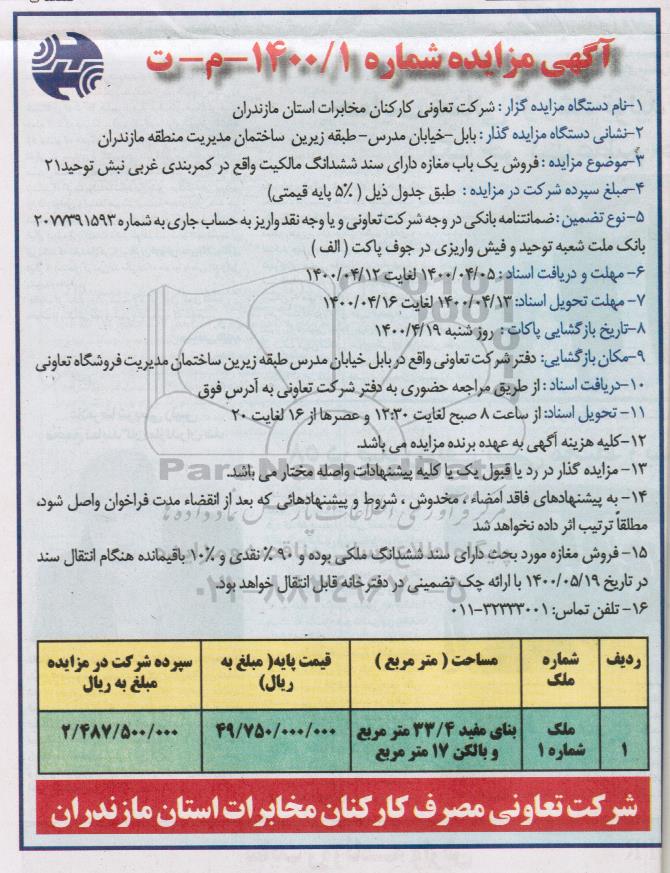 آگهی مزایده شماره ۱۴۰۰/۱-م-ت
۱-نام دستگاه مزایده گزار : شرکت تعاونی کارکنان مخابرات استان مازندران
۲-نشانی دستگاه مزایده گذار : بابل-خیابان مدرس-طبقه زیرین ساختمان مدیریت منطقه مازندران
۳-موضوع مزایده : فروش یک باب مغازه دارای سند ششدانگ مالکیت واقع در کمربندی غربی نبش توحید۲۱
۴-مبلغ سپرده شرکت در مزایده : طبق جدول ذیل ( ۵٪ پایه قیمتی)
۵-نوع تضمین : ضمانتنامه بانکی در وجه شرکت تعاونی و یا وجه نقد واریز به حساب جاری به شماره ۲۰۷۷۳۹۱۵۹۳
بانک ملت شعبه توحید و فیش واریزی در جوف پاکت ( الف )
۶- مهلت و دریافت اسناد : ۱۴۰۰/۰۴/۰۵ لغایت ۱۴۰۰/۰۴/۱۲
۷- مهلت تحویل اسناد: ۱۴۰۰/۰۴/۱۳ لغایت ۱۴۰۰/۰۴/۱۶
۸-تاریخ بازگشایی پاکات : روز شنبه ۱۴۰۰/۴/۱۹
۹-مکان بازگشایی: دفتر شرکت تعاونی واقع در بابل خیابان مدرس طبقه زیرین ساختمان مدیریت فروشگاه تعاونی
۱۰-دریافت اسناد : از طریق مراجعه حضوری به دفتر شرکت تعاونی به آدرس فوق
۱۱- تحویل اسناد: از ساعت ۸ صبح لغایت ۱۲:۳۰ و عصرها از ۱۶ لغایت ۲۰
۱۲-کلیه هزینه آگهی به عهده برنده مزایده می باشد.
۱۳- مزایده گذار در رد یا قبول یک یا کلیه پیشنهادات واصله مختار می باشد.
۱۴- به پیشنهادهای فاقد امضاء ، مخدوش ، شروط و پیشنهادهائی که بعد از انقضاء مدت فراخوان واصل شود،
مطلقاً ترتیب اثر داده نخواهد شد
۱۵- فروش مغازه مورد بحث دارای سند ششدانگ ملکی بوده و ۹۰ ٪ نقدی و ۱۰٪ باقیمانده هنگام انتقال سند
در تاریخ ۱۴۰۰/۰۵/۱۹ با ارائه چک تضمینی در دفترخانه قابل انتقال خواهد بود.
۱۶- تلفن تماس: ۳۲۳۳۳۰۰۱-۰۱۱
ردیف شماره ملک مساحت ( متر مربع ) قیمت پایه( مبلغ به ریال) سپرده شرکت در مزایده مبلغ به ریال
۱ ملک شماره ۱ بنای مفید ۳۳/۴ متر مربع و بالکن ۱۷ متر مربع ۴۹/۷۵۰/۰۰۰/۰۰۰ ۲/۴۸۷/۵۰۰/۰۰۰
شرکت تعاونی مصرف کارکنان مخابرات استان مازندران
ParsNamadData